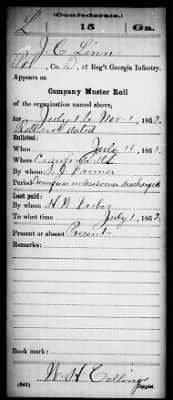 Confederate.
L 15 Ga.
J. C. Linn
Co. D, 15 Reg't Georgia Infantry.
Appears on
Company Muster Roll
of the organization named above,
for July 1 to Nov 1, 1862.
Roll not dated
Enlisted:
When July 15, 1861.
Where Crawfordville
By whom
Period
Last paid:
By whom H. W.
To what time July 1, 1862.
Present or absent Present
Remarks:
Book mark:
W. H. Collins
(642) Copyist.